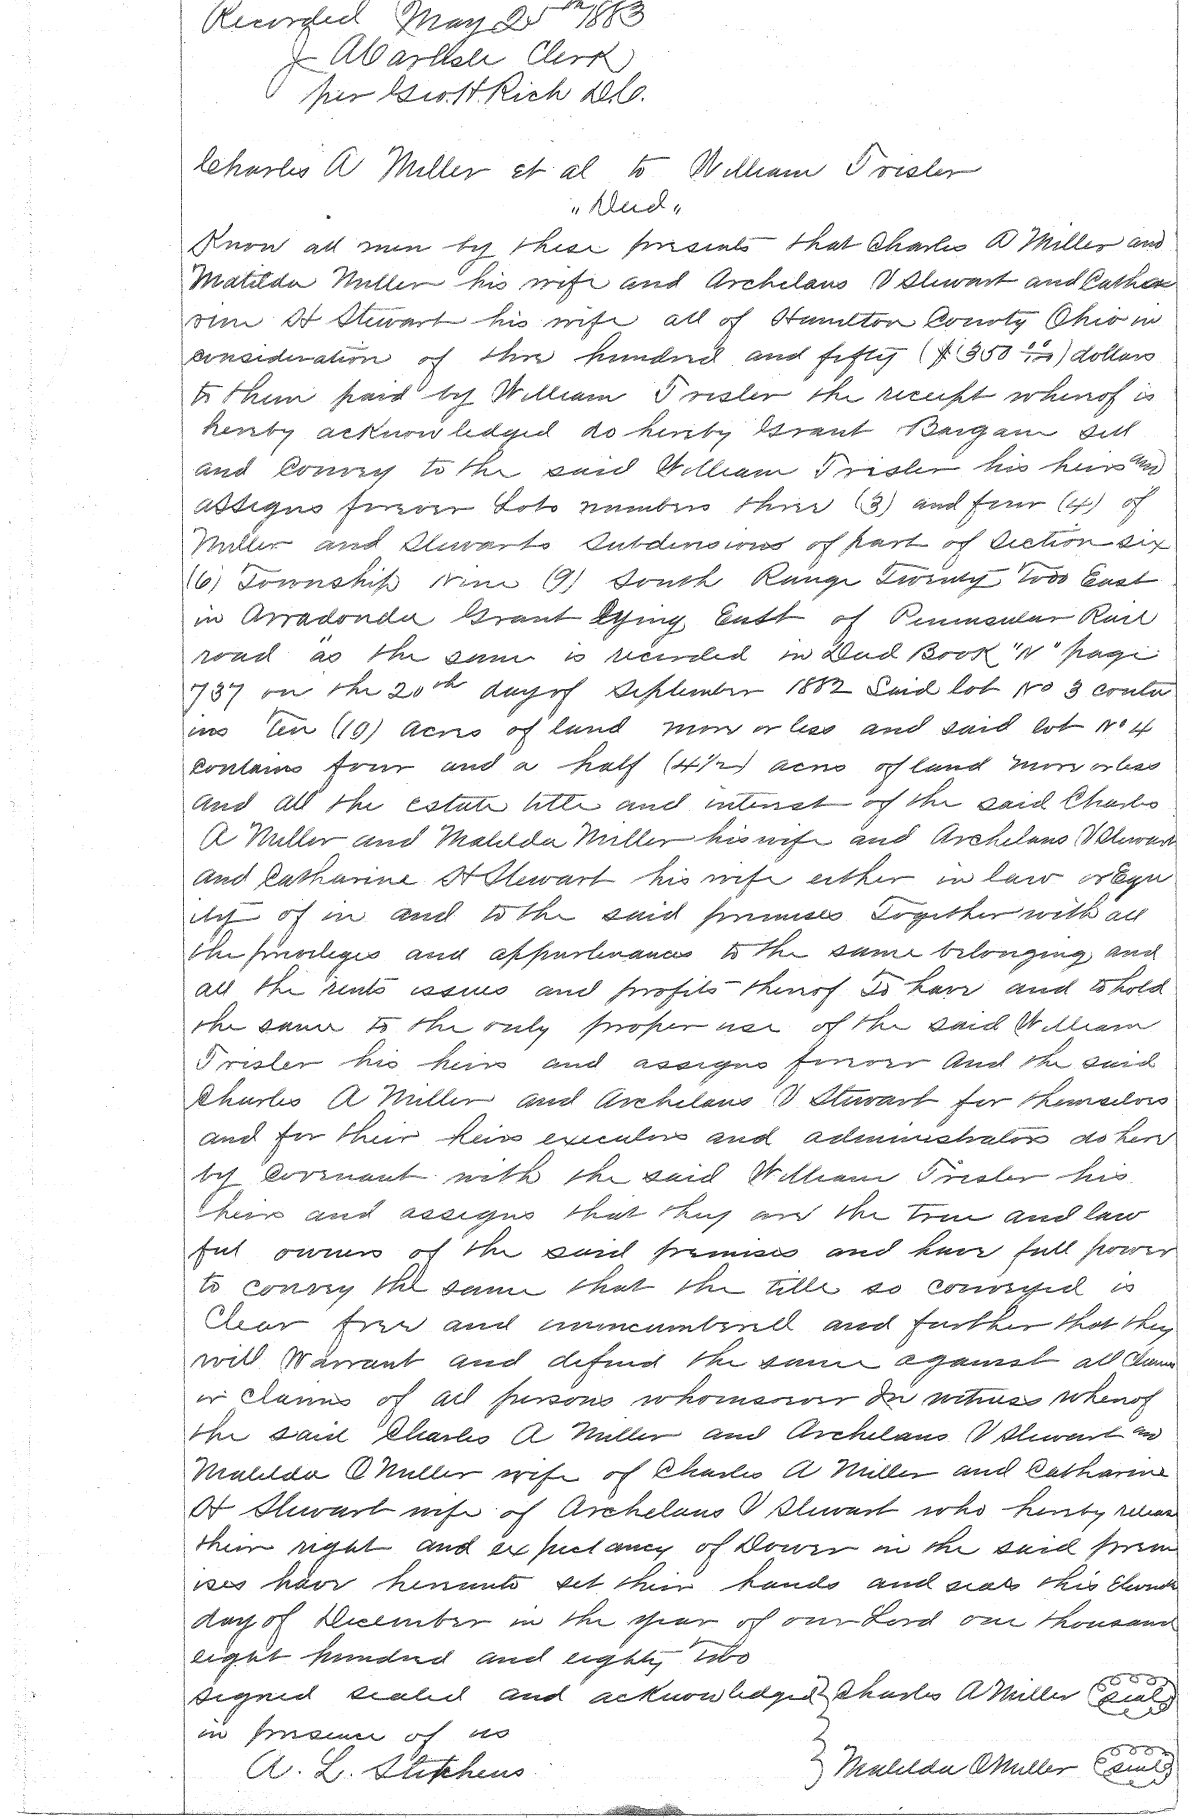 Recorded May 25th 1883
J A Carlisle Clerk
per Geo. H. Rich D.C.
Charles A Miller et al to William Trisler
"Deed"
Know all men by these presents that Charles A Miller and
Matilda Miller his wife and Archelaus V Stewart and Catha
rine H Stewart his wife all of Hamilton County Ohio in
consideration of three hundred and fifty ($350 00/100) dollars
to them paid by William Trisler the receipt whereof is
hereby acknowledged do hereby Grant Bargain sell
and Convey to the said William Trisler his heirs and
assigns forever Lots numbers three (3) and four (4) of
Miller and Stewarts Subdivisions of part of Section six
(6) Township Nine (9) South Range Twenty Two East
in Arradonda Grant lying East of Peninsular Rail
road "as the same is recorded in Deed Book "N" page
737 on the 20th day of September 1882 Said lot No 3 conta
ins Ten (10) acres of land more or less and said lot No 4
contains four and a half (4 1/2) acres of land more or less
and all the estate title and interest of the said Charles
A Miller and Matilda Miller his wife and Archelaus V Stewart
and Catharine H Stewart his wife either in law or Equ
ity of in and to the said premises Together with all
the privileges and appurtenances to the same belonging and
all the rents issues and profits thereof To have and to hold
the same to the only proper use of the said William
Trisler his heirs and assigns forever And the said
Charles A Miller and Archelaus V Stewart for themselves
and for their heirs executors and administrators do here
by covenant with the said William Trisler his
heirs and assigns that they are the true and law
ful owners of the said premises and have full power
to convey the same that the title so conveyed is
Clear free and unincumbered and further that they
will Warrant and defend the same against all Claim
or claims of all persons whomsoever In witness whereof
the said Charles A Miller and Archelaus V Stewart and
Matilda O Miller wife of Charles A Miller and Catharine
H Stewart wife of Archelaus V Stewart who hereby release
their right and expectancy of Dower in the said prem
ises have hereunto set their hands and seals this Eleventh
day of December in the year of our Lord one thousand
eight hundred and eighty Two
signed sealed and acknowledged } Charles A Miller (seal)
in presence of us
A. L. Stephens } Matilda O Miller (seal)